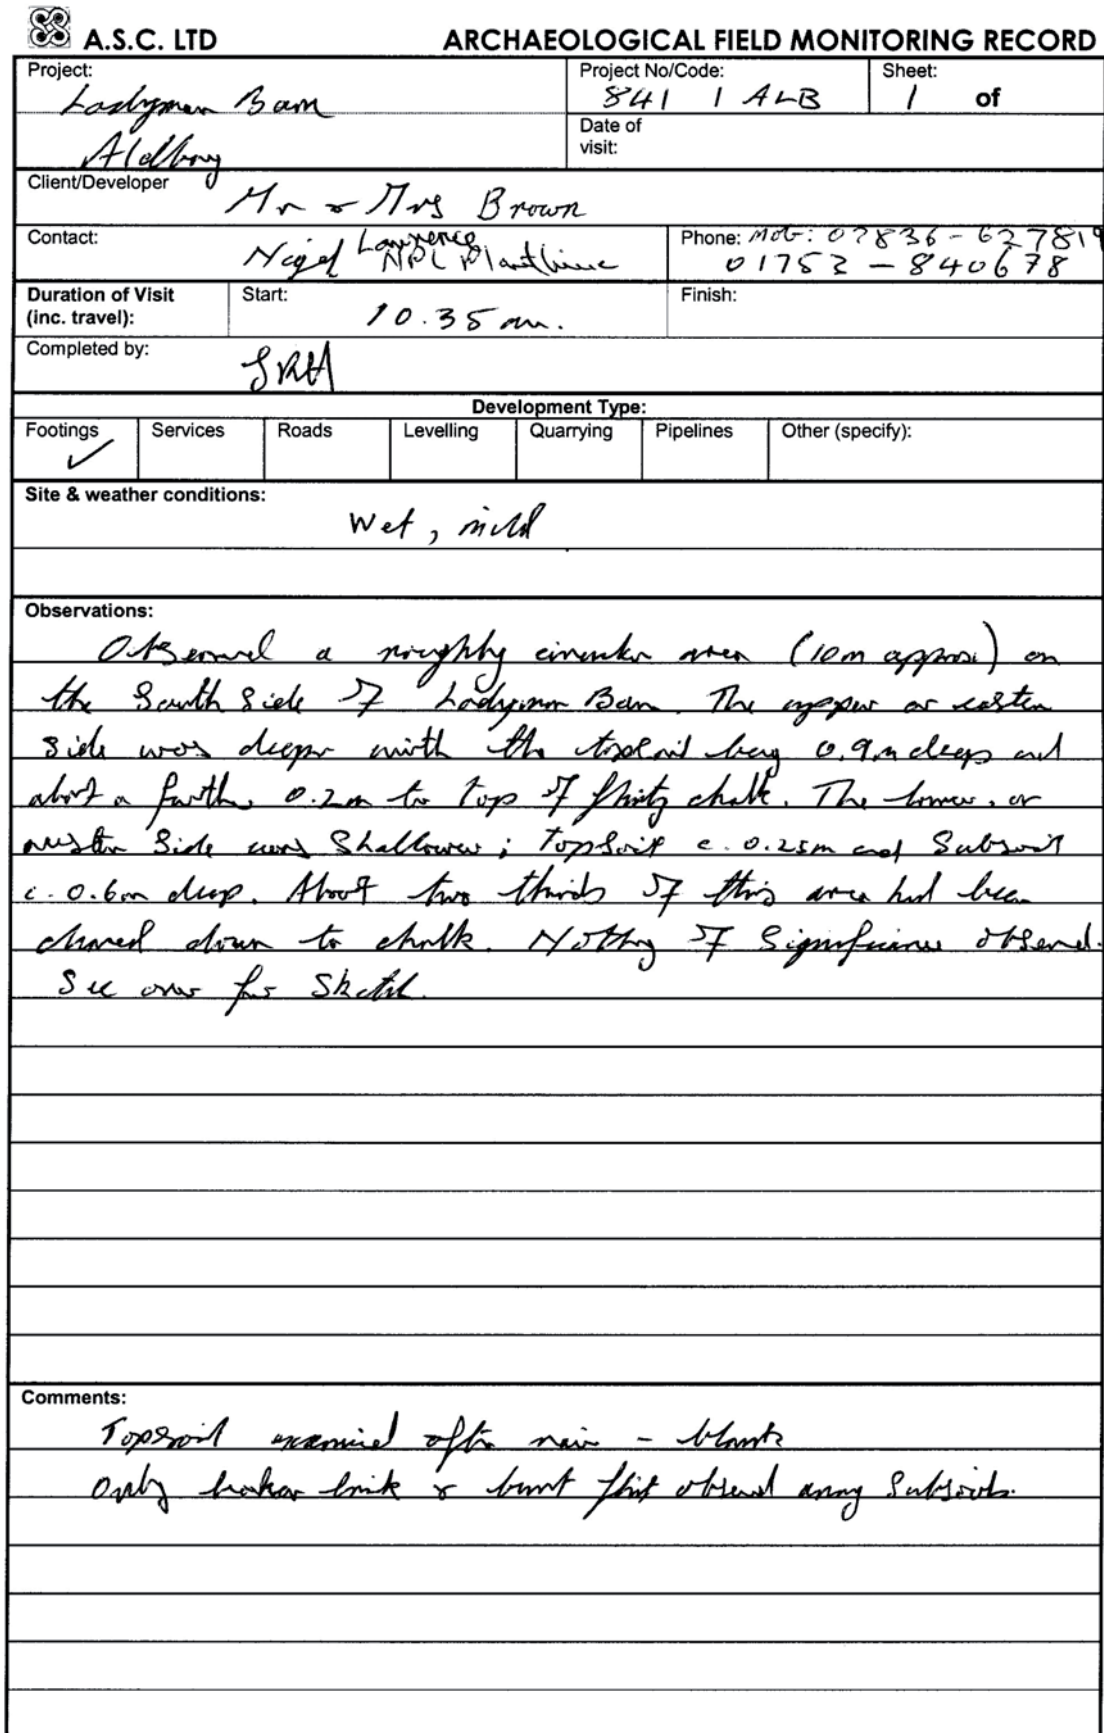 A.S.C. LTD ARCHAEOLOGICAL FIELD MONITORING RECORD
Project: Project No/Code: Sheet:
Ladymen Barn 841 / ALB 1 of
Aldbury Date of visit:
Client/Developer Mr & Mrs Brown
Contact: Nigel Lawrence Phone: Mob: 07836-627819
NPL Planthire 01753-840678
Duration of Visit (inc. travel): Start: 10.35 am. Finish:
Completed by:
Development Type:
Footings ✓ Services Roads Levelling Quarrying Pipelines Other (specify):
Site & weather conditions:
Wet, mild
Observations:
Observed a roughly circular area (10m approx) on
the South side of Ladymen Barn. The upper or eastern
side was deeper with the topsoil being 0.9m deep and
about a further 0.2m to top of flinty chalk. The lower, or
western side was shallower; topsoil c. 0.25m and subsoil
c. 0.6m deep. About two thirds of this area had been
cleared down to chalk. Nothing of significance observed.
See over for sketch.
Comments:
Topsoil examined after rain - blank
Only broken brick & burnt flint observed among subsoils.